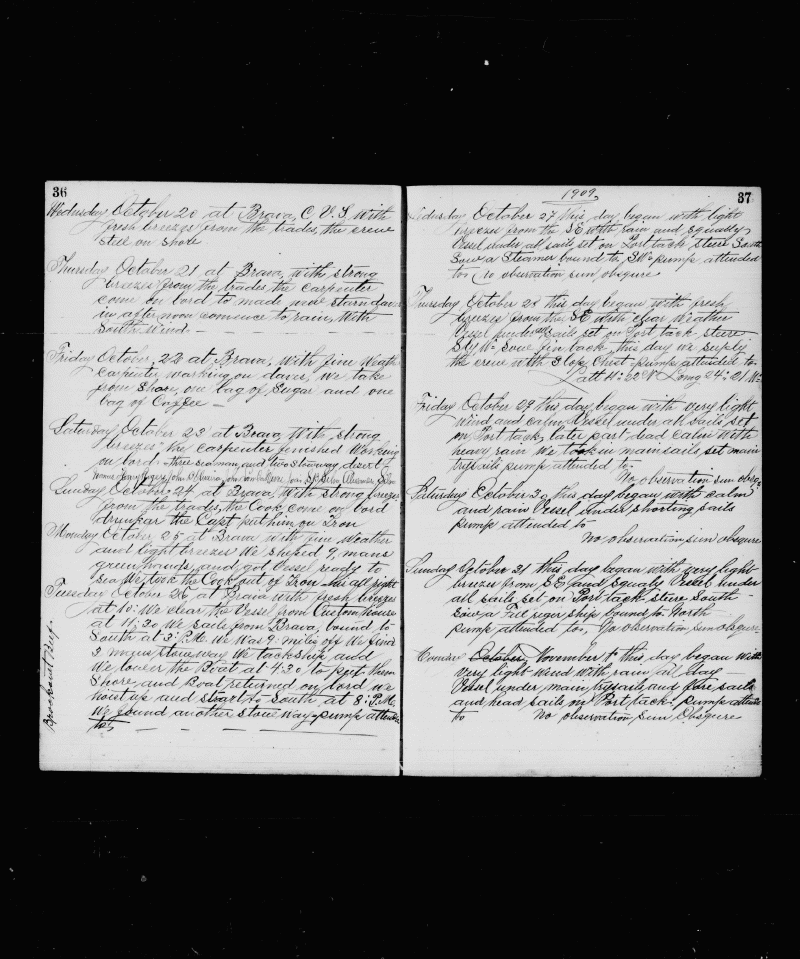 36
Wednesday October 20 at Brava, C. V. I. with
fresh breezes from the trades, the crew
still on shore
Thursday October 21 at Brava, with strong
breezes from the trades the carpenter
come on bord to made new starn daver
in after noon comence to rain, With
South wind. —
Friday October, 22 at Brava, with fine Weath
carpenter working on daver, we take
from Shore, one bag of Sugar and one
bag of Coffee —
Saturday October 23 at Brava, With strong
breezes, the carpenter finished working
on bord. three seaman, and two Stowway desert
Sunday October 24 at Brava, With strong breezes
from the trades, the Cook come on bord
drunkar the Capt put him on Iron
Monday October 25 at Brava with fine Weather
and light breezes We shiped 9, mans
greenhands, and got Vessel ready to
sea We took the Cook out of Iron all right
Tuesday October 26 at Brava with fresh breezes
at 10: We clear the Vessel from Custom house
at 11:30 We saile from Brava, bound to
South at 3: P.M. We Was 9. miles off We find
We tackship and
We lower the Boat at 4:30 to put them
Shore, and Boat returned on bord we
hoist up and start to South, at 8: P.M.
We found another stoneway pump attende
to,
37
1909.
October 27 this day began with light
breezes from the SE with rain and squally
Vessel under all sails set on Port tack, steere South
Saw a Steamer bound to SW. pump attended
to No observation sun obsqure
Thursday October 28 this day began with fresh
breezes from the SE with clear Weather
Vessel under all Sails set on Port tack steere
tack, this day we suply
the crew with Slop Chest pump attended to
Latt 11: 52 N Long 24: 21 W.
Friday October 29 this day began with very light
wind and calm, Vessel under all sails set
on Port tack, later part dead calm with
heavy rain We took in mainsails set main
trysails pump attended to
No observation sun obsqe
Saturday October 30 this day began with calm
and rain Vessel under shorting sails
pump attended to
No observation, sun obsqure
Sunday October 31 this day began with very light
breezes from SE, and squaly Vessel under
all sails set on Port tack steere South
Saw a Full riger ship bound to North
pump attended to, No observation sun obsqure.
October, November 1st this day began With
very light Wind with rain all day —
Vessel under main trysails, and Fore sails
and head sails on Port tack. pump attende
to No observation Sun Obsqure